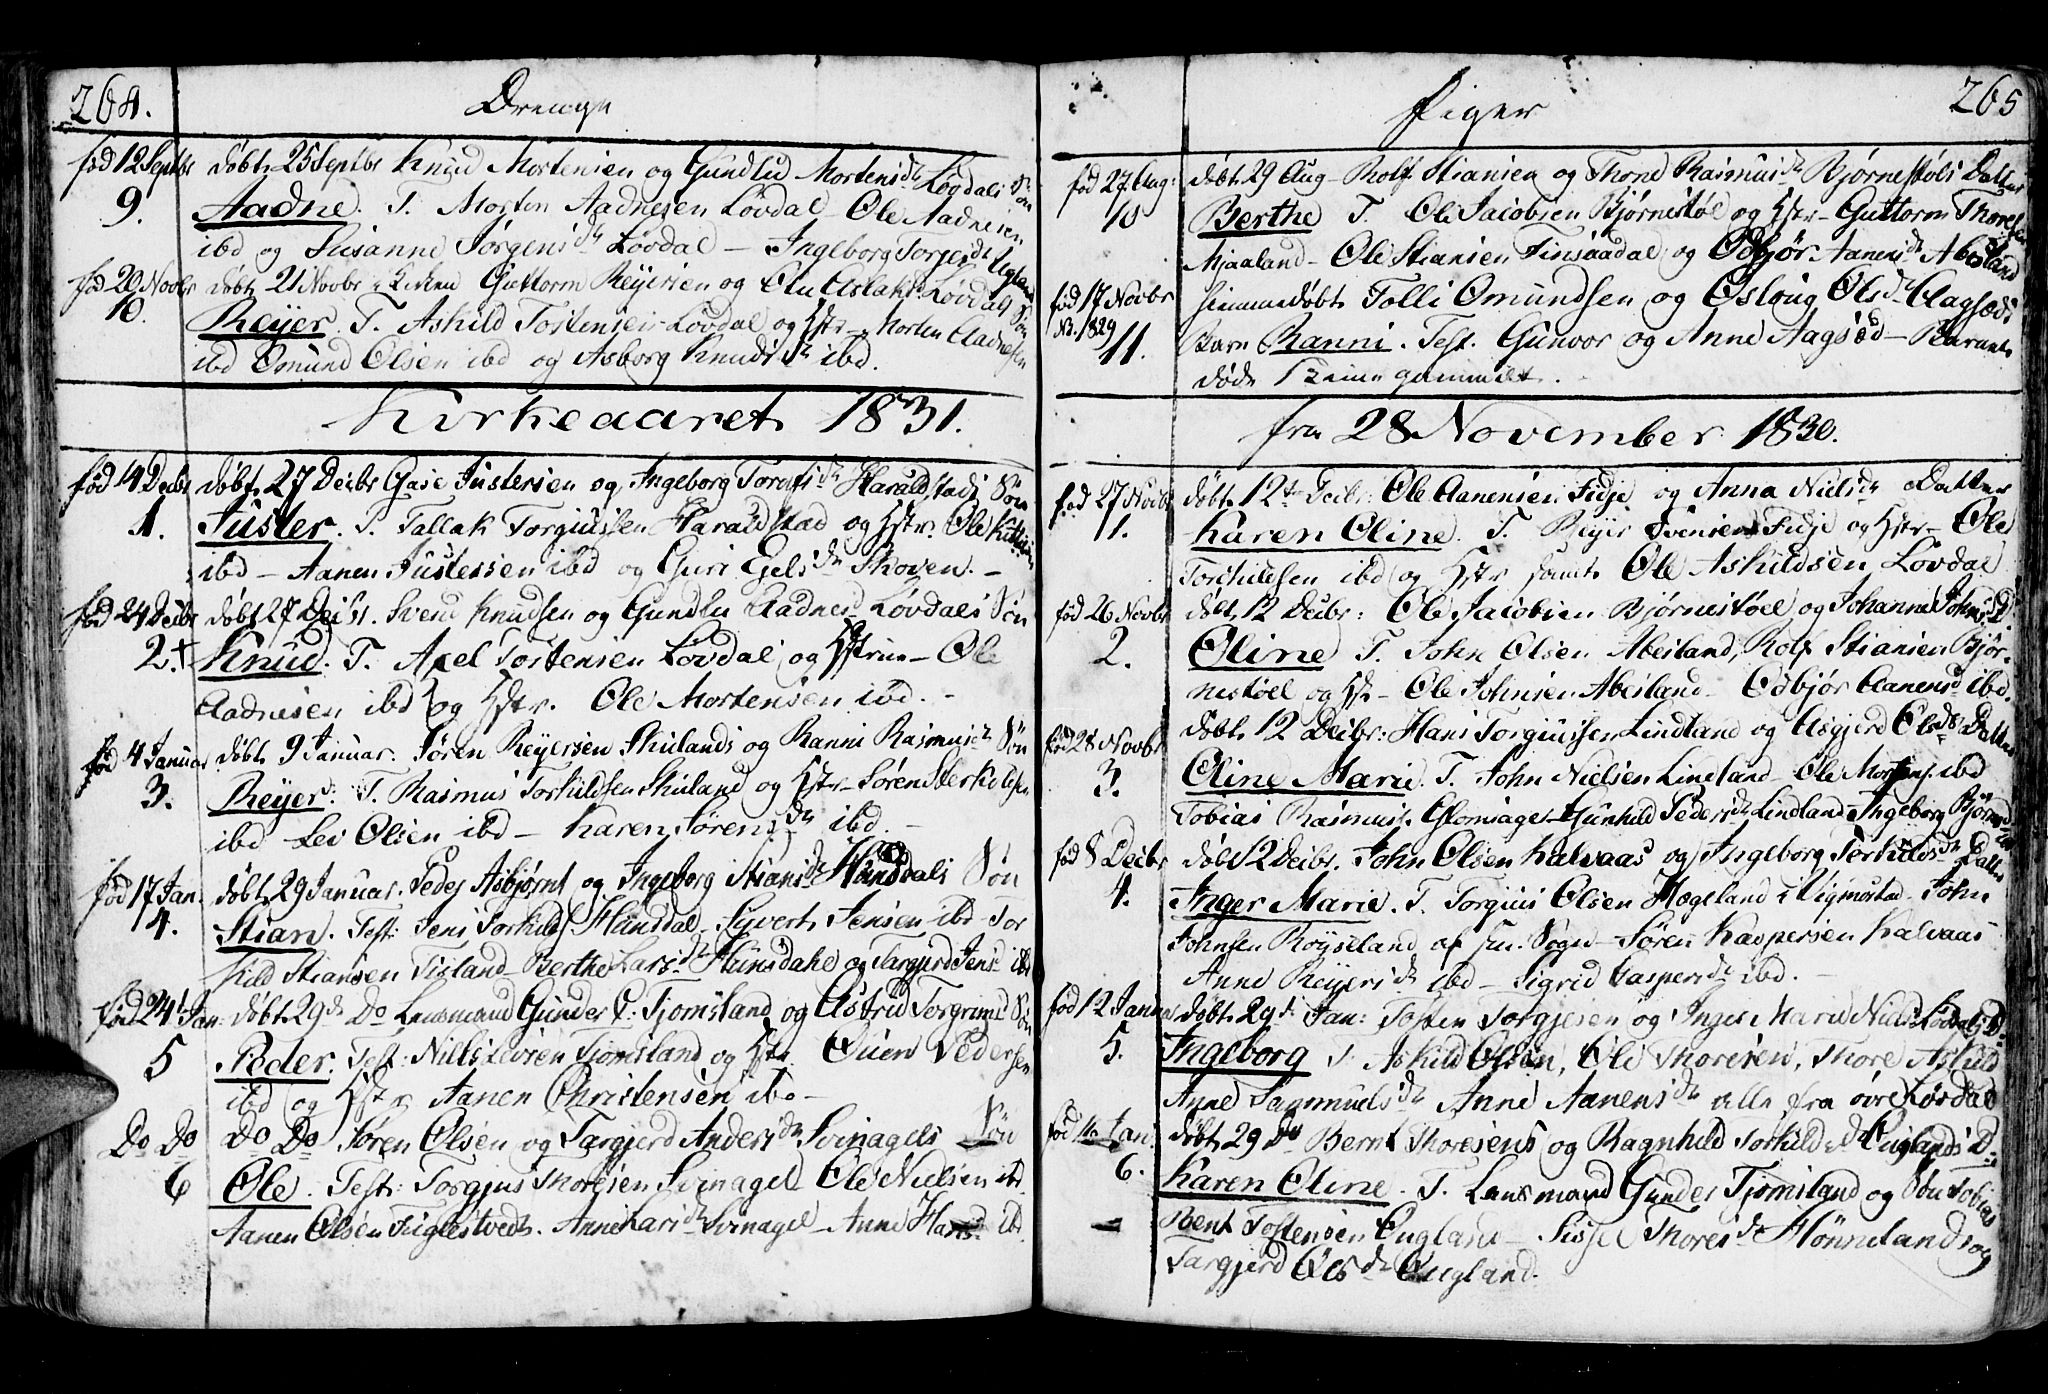 264.
Drenge
fød 12 Septbr døbt 25 Septbr Knud Mortensen og Gundlud Mortensdr Løvdals Søn
9. Aadne. T. Morten Aadnesen Løvdal - Ole Aadnesen
ibd og Susanne Jørgensdr Løvdal - Ingeborg Torjesdr Ugland
fød 20 Novbr døbt 21 Novbr i Kirken Guttorm Reyersen og Olu Aslaksdr Løvdals Søn
10. Reyer. T. Askild Tostensen Løvdal og Hstr - Morten Aadnesen
ibd Omund Olsen ibd og Asborg Knudsdr ibd.
Kirkeaaret 1831.
fød 14 Decbr døbt 27 Decbr Gase Justersen og Ingeborg Haraldstads Søn
1. Juster. T. Tallak Torgiussen Haraldstad og Hstr. Ole
ibd - Aanen Justersen ibd og Guri Egelsdr Skoven. -
fød 24 Decbr døbt 27 Decbr. Svend Knudsen og Gundlu Aadnesd Løvdals Søn
2. + Knud. T. Axel Tostensen Løvdal og Hstrue - Ole
Aadnesen ibd og Hstr. Ole Mortensen ibd. -
fød 4 Januar døbt 9 Januar. Søren Reyersen Skulands og Ranni Rasmusdr Søn
3. Reyer. T. Rasmus Torkildsen Skuland og Hstr - Søren Sterkolsen
ibd Lev Olsen ibd - Karen Sørensdr ibd. -
fød 17 Jan. døbt 29 Januar. Peder Asbjørns og Ingeborg Stiansdr Hunsdals Søn
4. Stian. Test: Jens Torkilds. Hunsdal - Syvert Jensen ibd - Tor
kild Stiansen Tisland - Berthe Larsdr Hunsdahl og Targjerd Jens ibd
fød 24 Jan døbt 29de Do Lensmand Gunder P. Tjomsland og Astrid Torgrims Søn
5 Peder. Test: Nills Levsen Tjomsland og Hstr. Ouen Pedersen
ibd og Hstr Aanen Christensen ibd -
Do Do Do Do Søren Olsen og Targjerd Andersdr Svinagels Søn
6 Ole. Test: Torgjus Thoresen Svinagel - Ole Nielsen ibd
Aanen Olsen Fuglestvedt. Anne Larsdr Svinagel - Anne Hansd ibd
265
Piger
fød 27 Aug: døbt 29 Aug - Rolf Stiansen og Thone Rasmusdr Bjørnestøls Datter
10 Berthe T. Ole Jacobsen Bjørnestøl og Hstr - Guttorm Thoresen
Mjaaland - Ole Stiansen Finsaadal og Odbjør Aanensdr Abesland
fød 17 Novbr hiemmedøbt Tolli Omundsen og Osloug Olsdr Aagsæds
Nb. 1829
11. Barn Ranni. Test. Gunvor og Anne Aagsæd - Barnet
døde 1 Time gammelt.
fra 28 November 1830.
fød 27 Novbr døbt 12te Decbr: Ole Aanensen Fidje og Anna Nielsdr Datter
1. Karen Oline. T. Reyer Svensen Fidje og Hstr - Ole
Torkildsen ibd og Hstr samt Ole Askildsen Løvdal
fød 26 Novbr døbt 12 Decbr: Ole Jacobsen Bjørnestøel og Johanne Johnsd D.
2. Oline T. John Olsen Abesland, Rolf Stiansen Bjør-
nestøel og Hstr - Ole Johnsen Abesland - Odbjør Aanensd ibd.
fød 28 Novbr døbt 12 Decbr: Hans Torgiussen Lindland og Asgjerd Olsdr Datter
3. Oline Marie. T. John Nielsen Lindland - Ole Mortens. ibd
Tobias Rasmus. Glomsager - Gunhild Pedersdr Lindland - Ingeborg
fød 8 Decbr døbt 12 Decbr. John Olsen Kalvaas og Ingeborg Terkildsdr Datter
4. Inger Marie. T. Torgius Olsen Høgeland i Vigmostad - John
Johnsen Røyseland af Sogn - Søren Kaspersen Kalvaas
Anne Reyersdr ibd - Sigrid Caspersdr ibd. -
fød 12 Januar døbt 29de Jan: Tosten Torgjesen og Inger Marie Niels Løvdals D.
5. Ingeborg T. Askild Olsen, Ole Thoresen, Thore Askild
Anne Sagmundsdr Anne Aanensdr alle fra øvre Løvdal
fød 16 Jan. døbt 29 Do Bernt Thoresens og Ragnhild Torkildsdr Euglands D.
6. Karen Oline. T. Lensmand Gunder Tjomsland og Søn Tobias
Bent Tostensen Eugland - Sissel Thoresdr Hønneland og
Targjerd Olsdr Eugland.